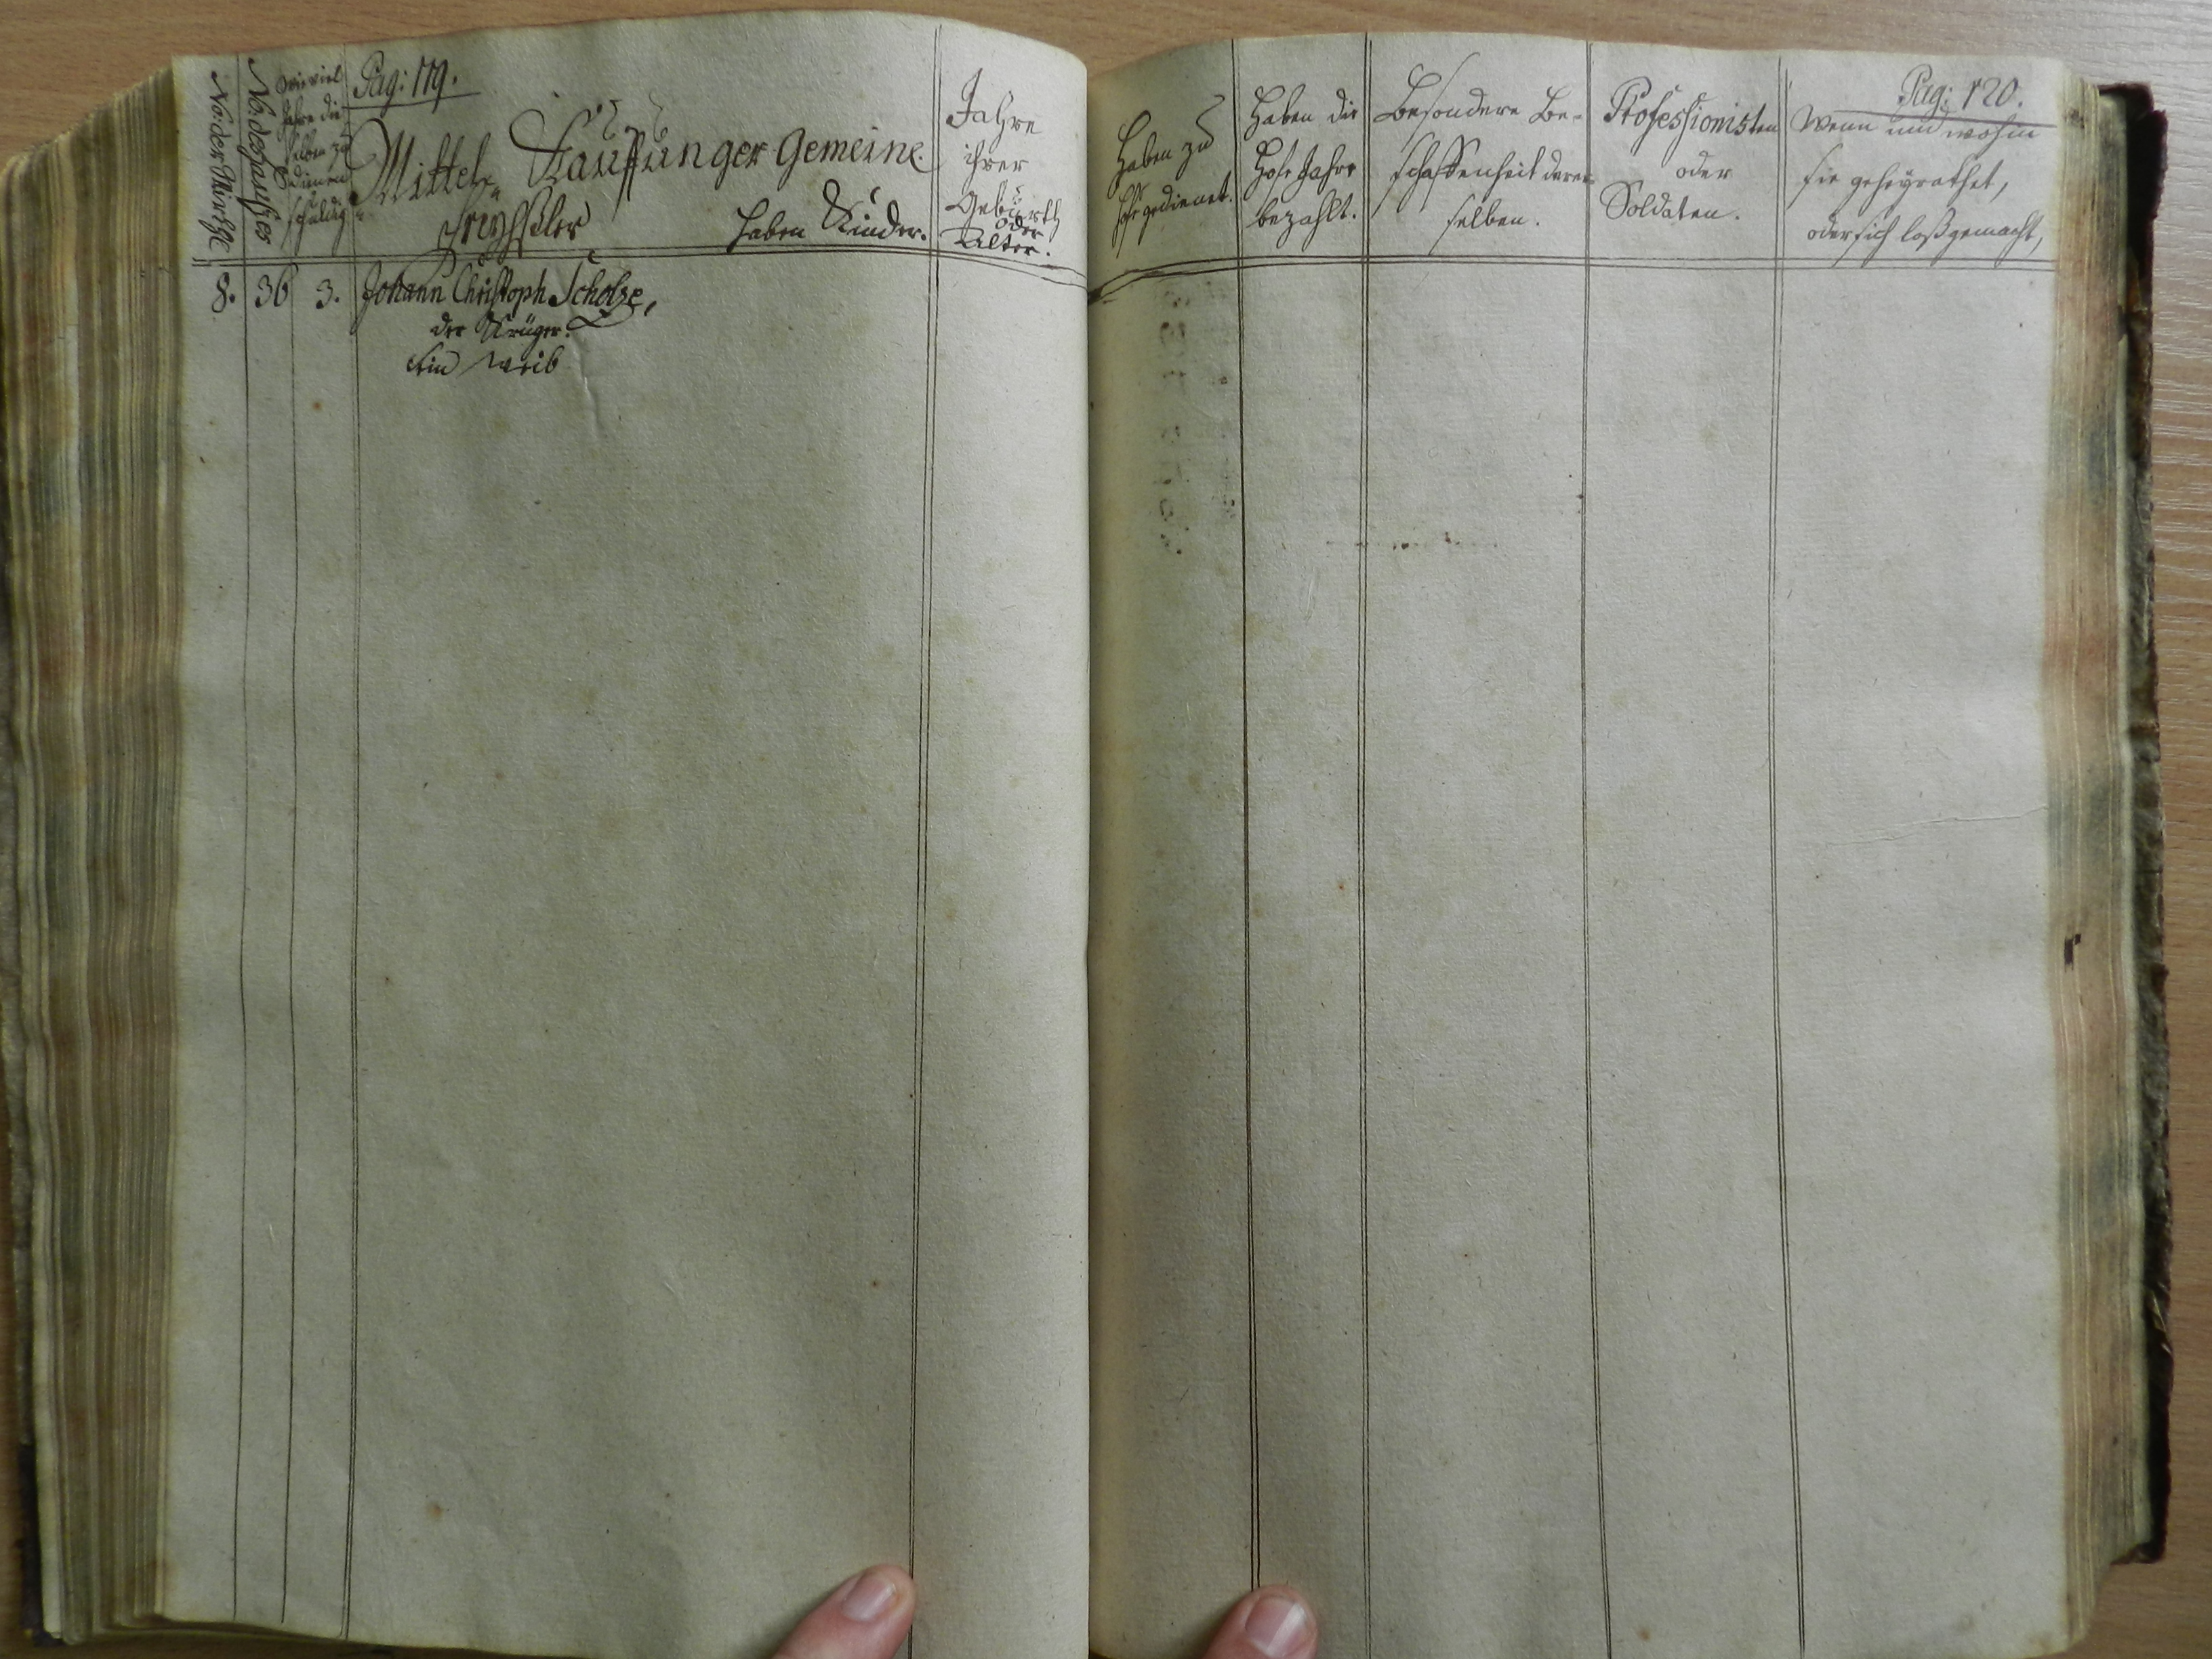 No: der Wirthe
No: des Haußes
Wie viel
Jahre die
selben zu
dienen
schuldig
Pag: 119.
Mittel-Kauffunger Gemeine.
haben Kinder.
Jahre
ihrer
Geburth
oder
Alter.
8. 36 3. Johann Christoph Scholze,
der Krüger.
Ein Weib
Haben zu
Hofe gedienet.
Haben die
Hofe Jahre
bezahlt.
Besondere Be-
schaffenheit derer-
selben.
Professionisten
oder
Soldaten.
Pag: 120.
Wenn und wohin
sie geheyrathet,
oder sich loßgemacht,